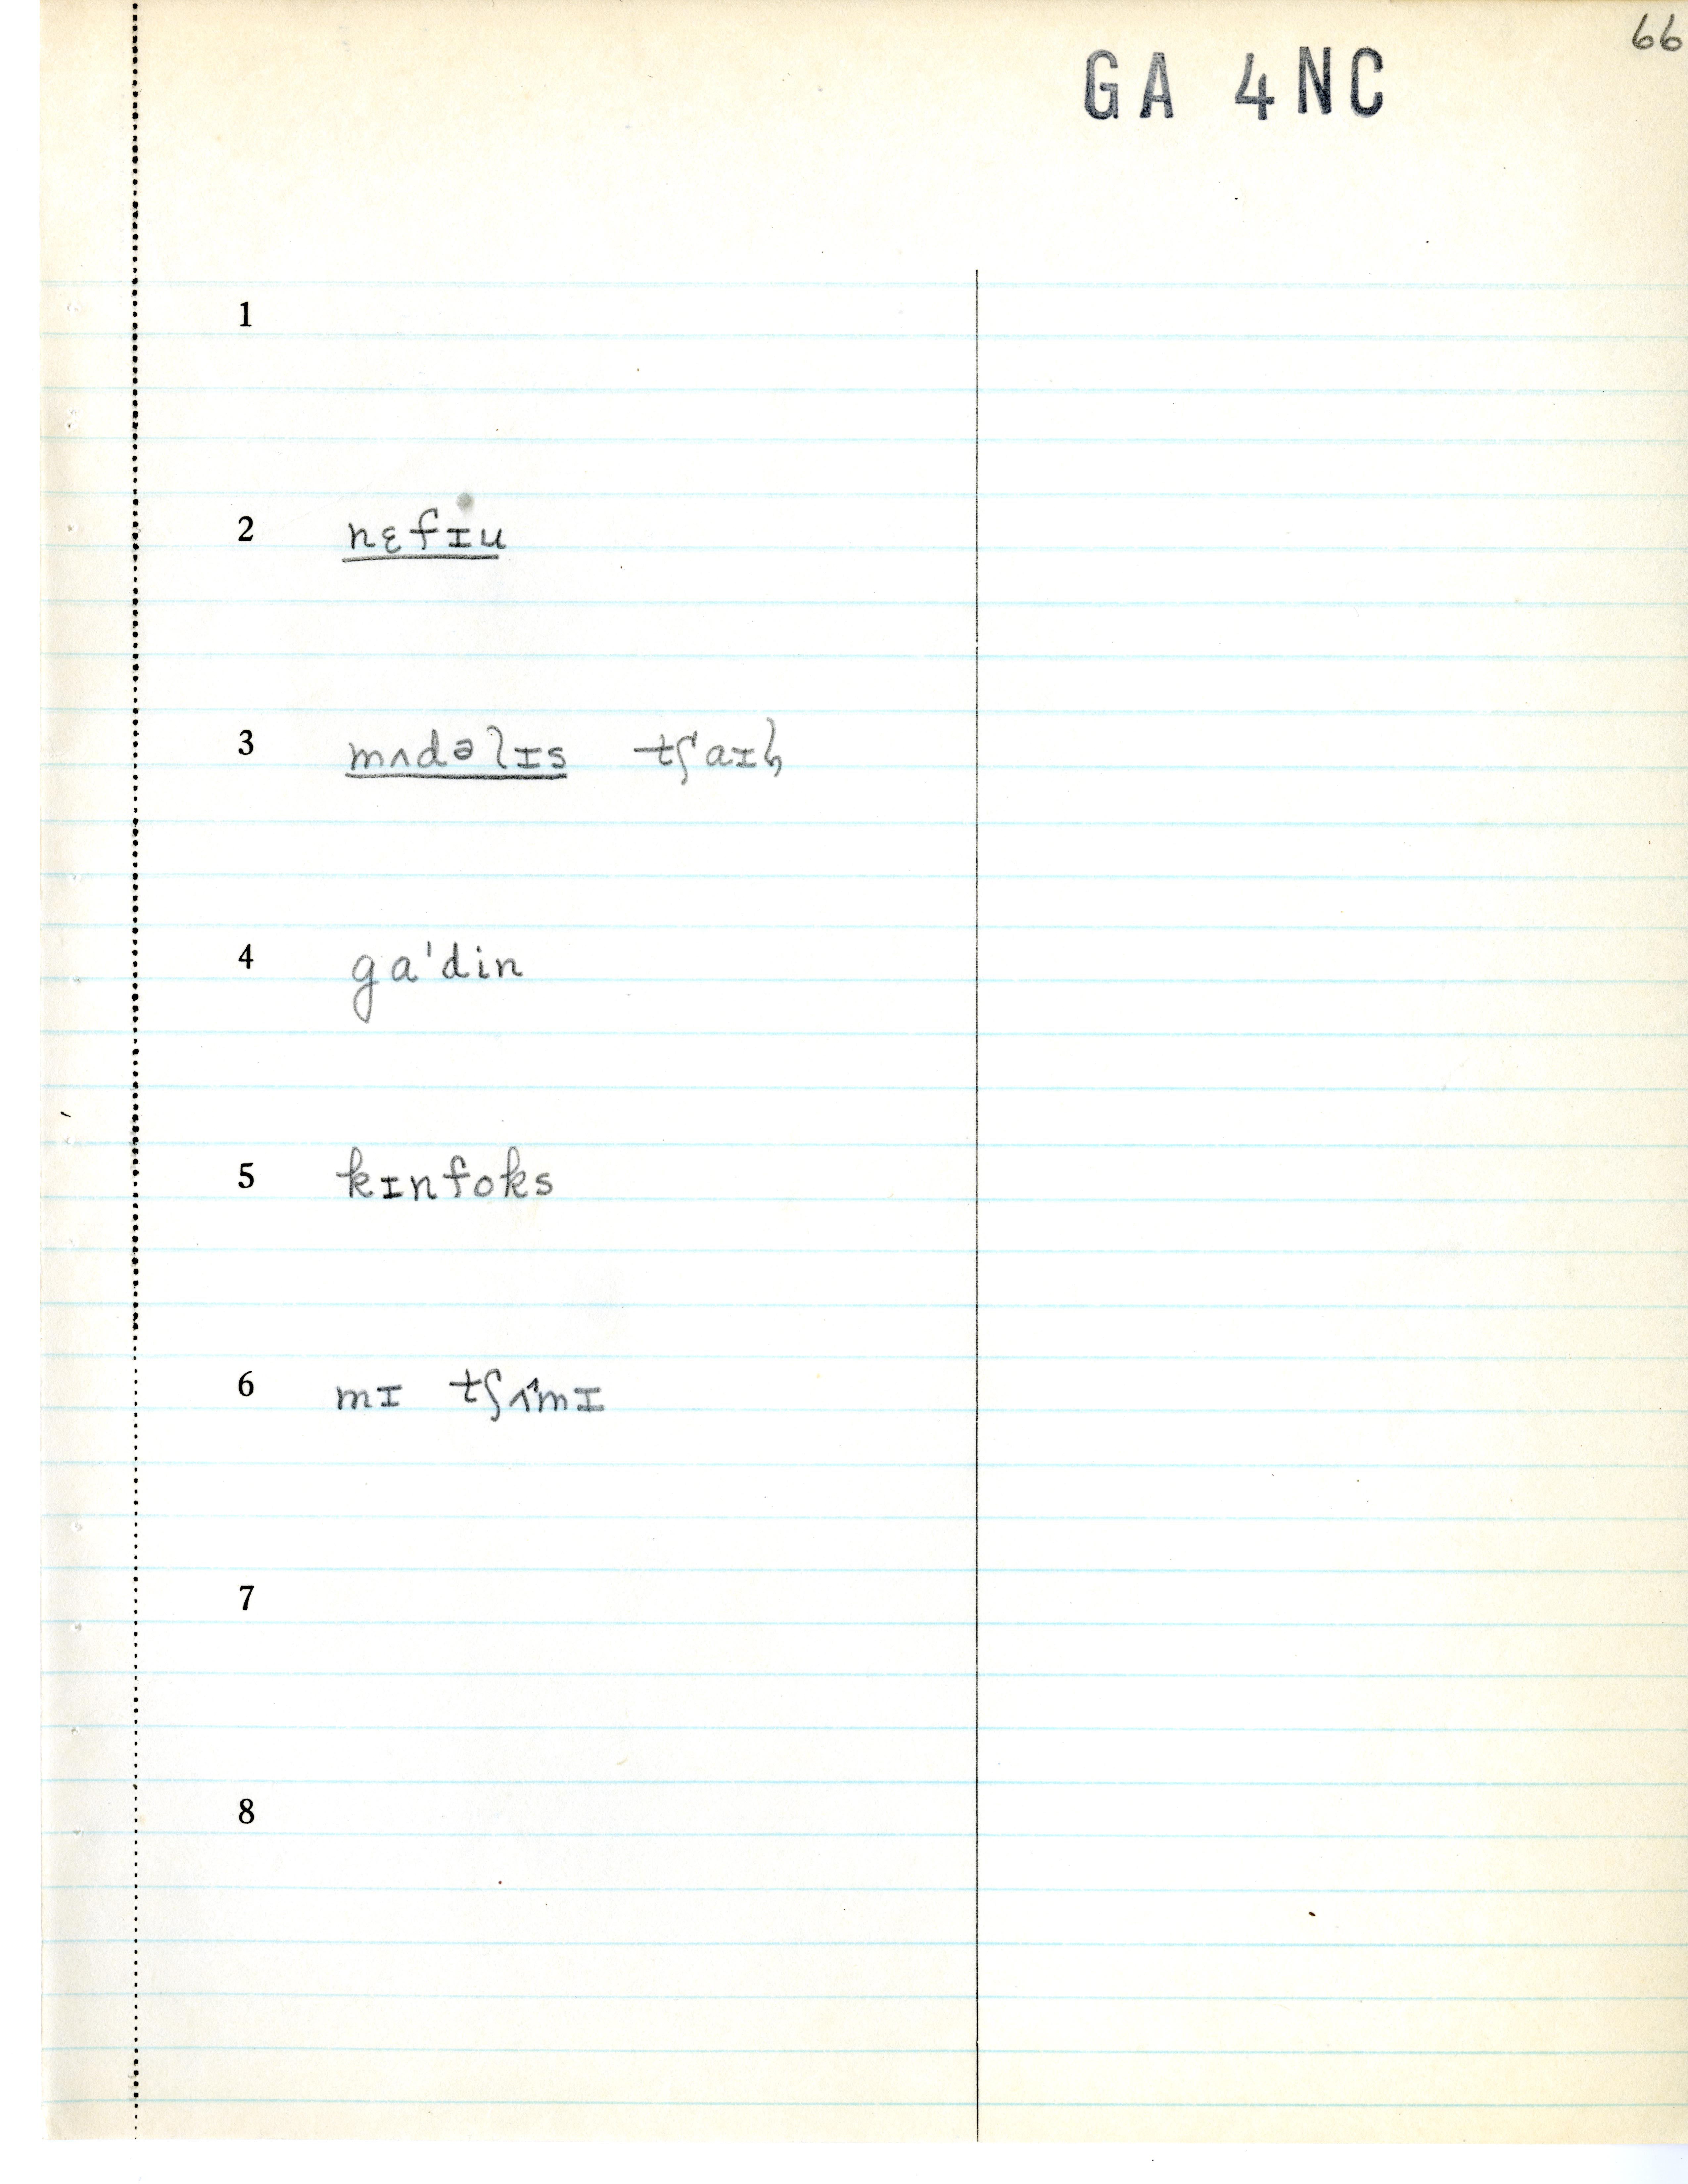 66
GA 4NC
1
2 nɛfɪu
3 mʌdəlɪs tʃaɪɫ
4 ga'din
5 kɪnfoks
6 mɪ tʃʌmɪ
7
8